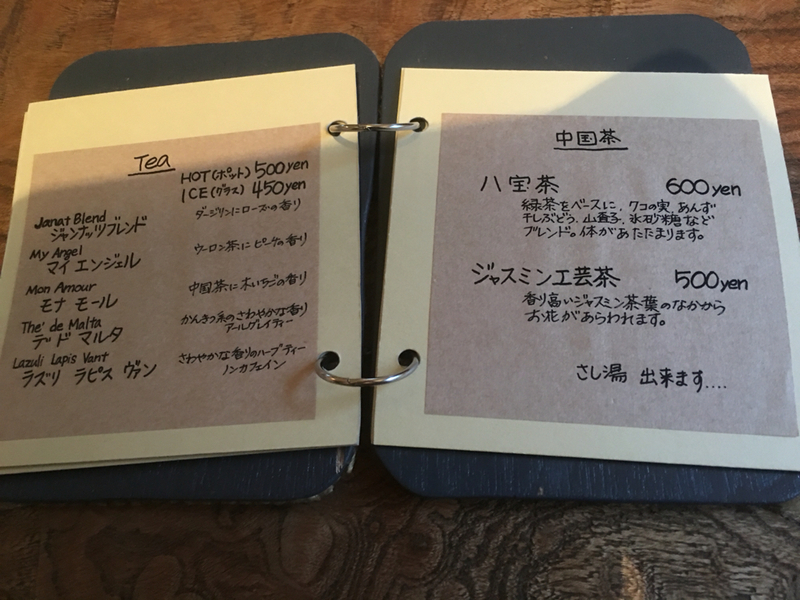 Tea
HOT(ポット) 500yen
ICE(グラス) 450yen
Janat Blend
ジャンナッツブレンド
ダージリンにローズの香り
My Angel
マイ エンジェル
ウーロン茶にピーチの香り
Mon Amour
モナ モール
中国茶に木いちごの香り
The' de Malta
デ・ド マルタ
かんきつ系のさわやかな香り
アールグレイティー
Lazuli Lapis Vant
ラズリ ラピス ヴァン
さわやかな香りのハーブティー
ノンカフェイン
中国茶
八宝茶 600yen
緑茶をベースに、クコの実、あんず
干しぶどう、山査子、氷砂糖など
ブレンド。体があたたまります。
ジャスミン工芸茶 500yen
香り高いジャスミン茶葉のなかから
お花があらわれます。
さし湯 出来ます....